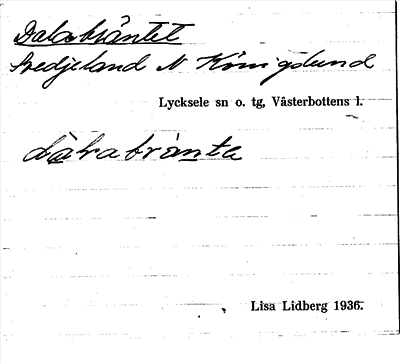 Dalabräntet
Svedjeland N Königslund
Lycksele sn o. tg, Västerbottens l.
dàlrabrànta
Lisa Lidberg 1936.